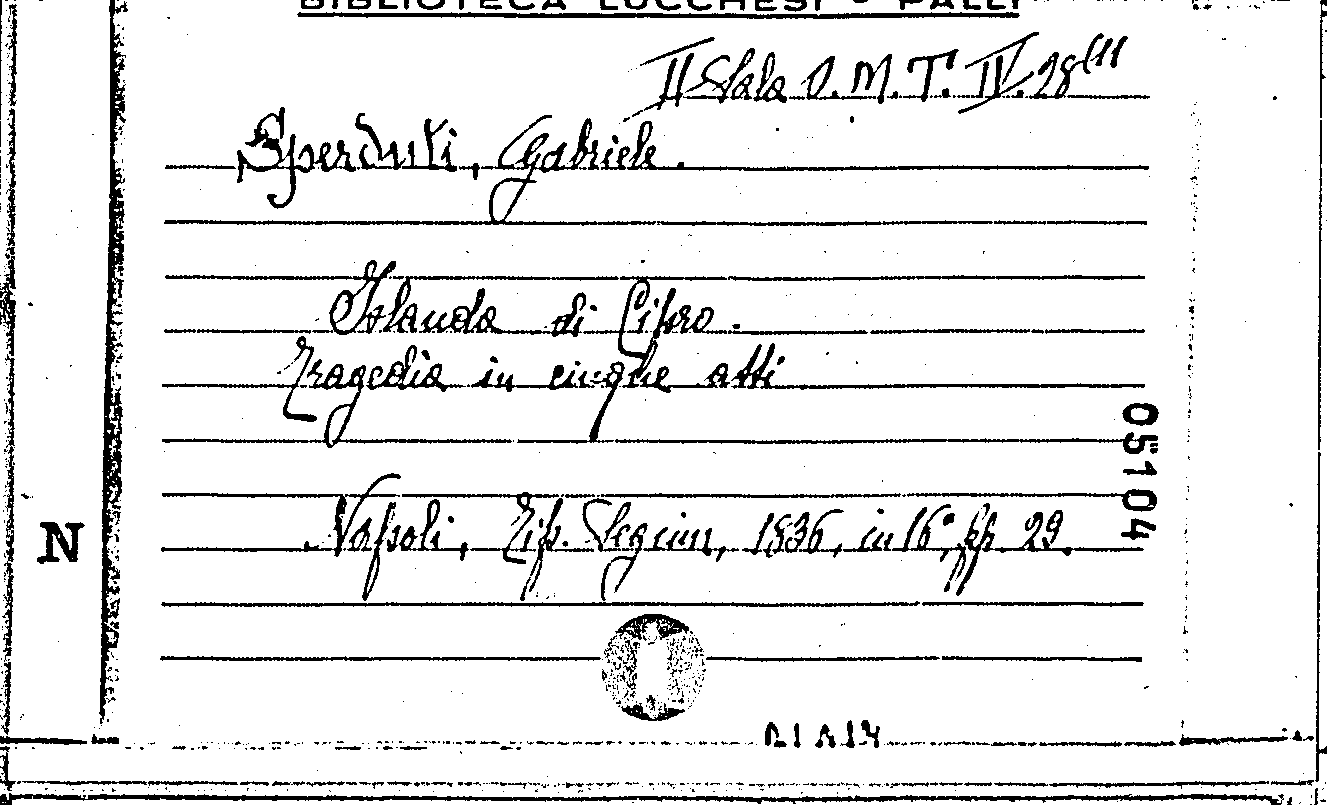 BIBLIOTECA LUCCHESI - PALLI
II Sala O. M. T. IV. 28(11
Sperduti, Gabriele.
Islauda di Cipro.
Tragedia in cinque atti
05104
N
Napoli, Tip. Seguin, 1836, in 16°, pp. 29.